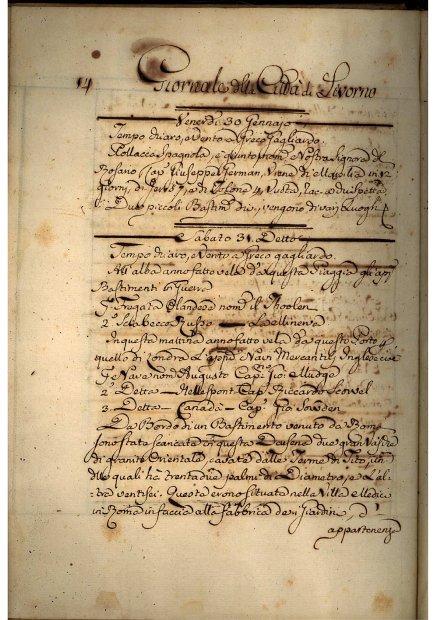 14 Giornale della Città di Livorno
Venerdì 30 Gennajo
Tempo chiaro, e Vento a Greco Gagliardo.
Pollacca Spagnola, è giunto nom.ª Nostra Signora del
Rosario, Cap. Giuseppe German, Viene di in 12
giorni, di Tolone 4
E Due piccoli Bastim.ti di vengono di varj Luoghi
Sabato 31. Detto
Tempo chiaro, e Vento a Greco gagliardo.
All' alba anno fatto vela da questa Spiaggia gli app.
Bastimenti in Guerra
P.ª Fregata Olandese nom.ª il Thoolen
2.º Sciabecco Russo — La Minerva
In questa mattina anno fatto vela da questo Porto p.
quello di Londra Navi Mercantili Inglesi cioè
P.ª Nave nom.ª Augusto Cap. Gio:
2.ª Detta — Hellespont Cap. Riccardo
3. Detta — Canada — Cap. Gio: Sowden
Da Bordo di un Bastimento venuto da Roma
sono state scaricate in questa Darsena due gran Vasche
di granito Orientale cavate dalle Terme di Tito, un
delle quali ha trentadue palmi di Diametro, e l'al-
tra ventisei. Queste erono situate nella Villa Medici
in Roma in faccia alla fabbrica dei Giardin
appartenenz